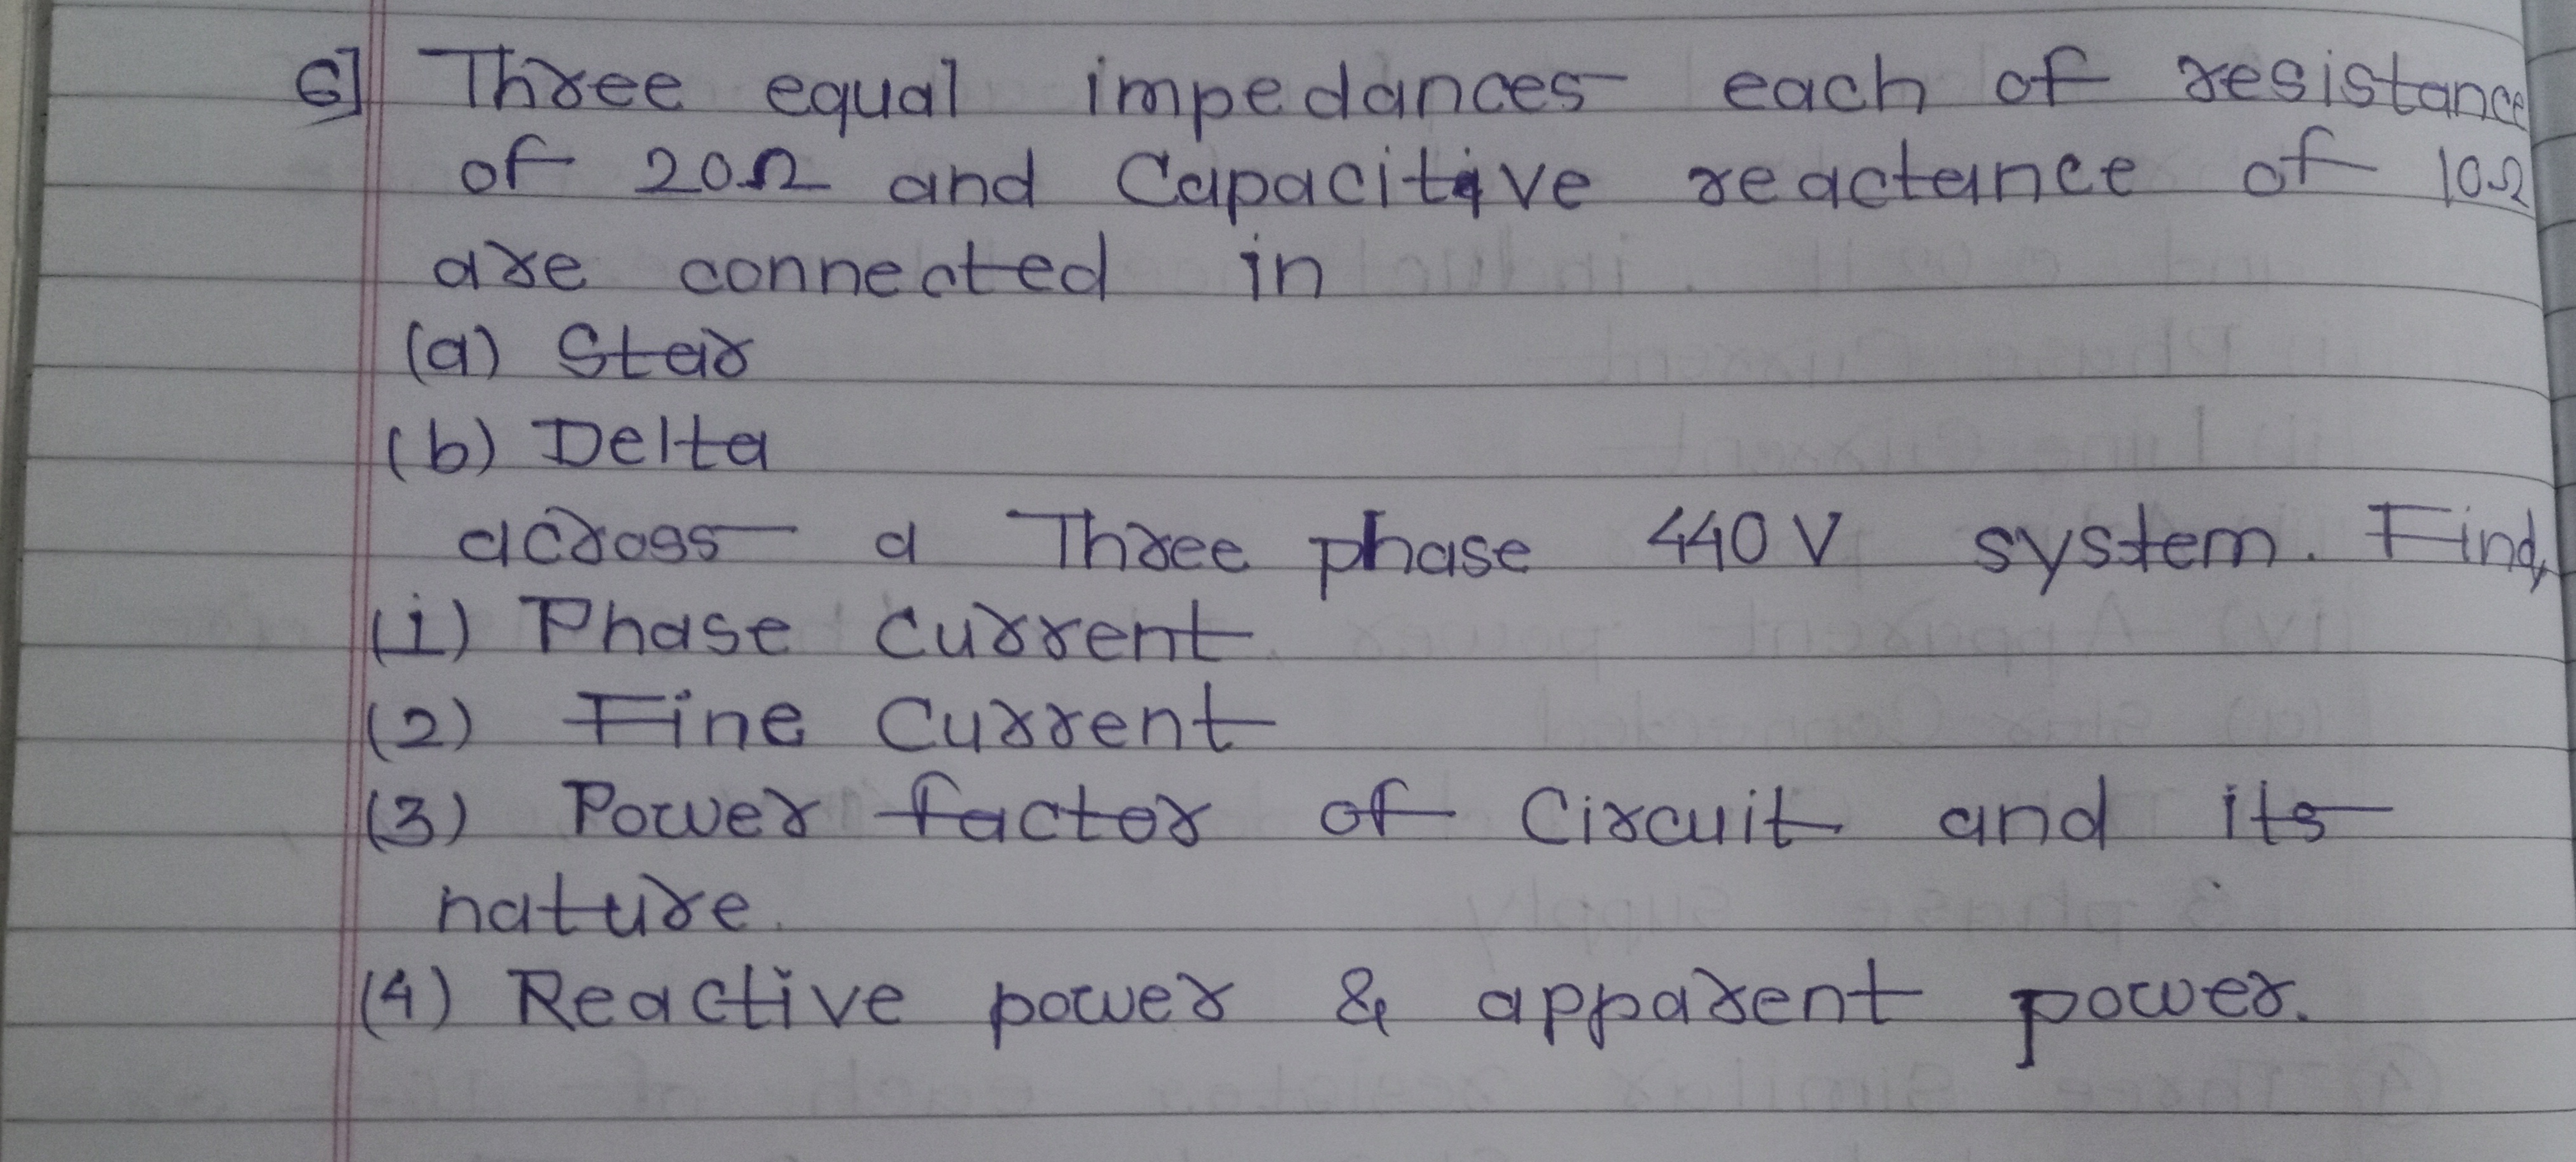 6] Three equal impedances each of resistance
of 20Ω and Capacitive reactance of 10Ω
are connected in
(a) Star
(b) Delta
across a Three phase 440 V system. Find,
(1) Phase Current
(2) Fine Current
(3) Power factor of Circuit and its
nature.
(4) Reactive power & apparent power.